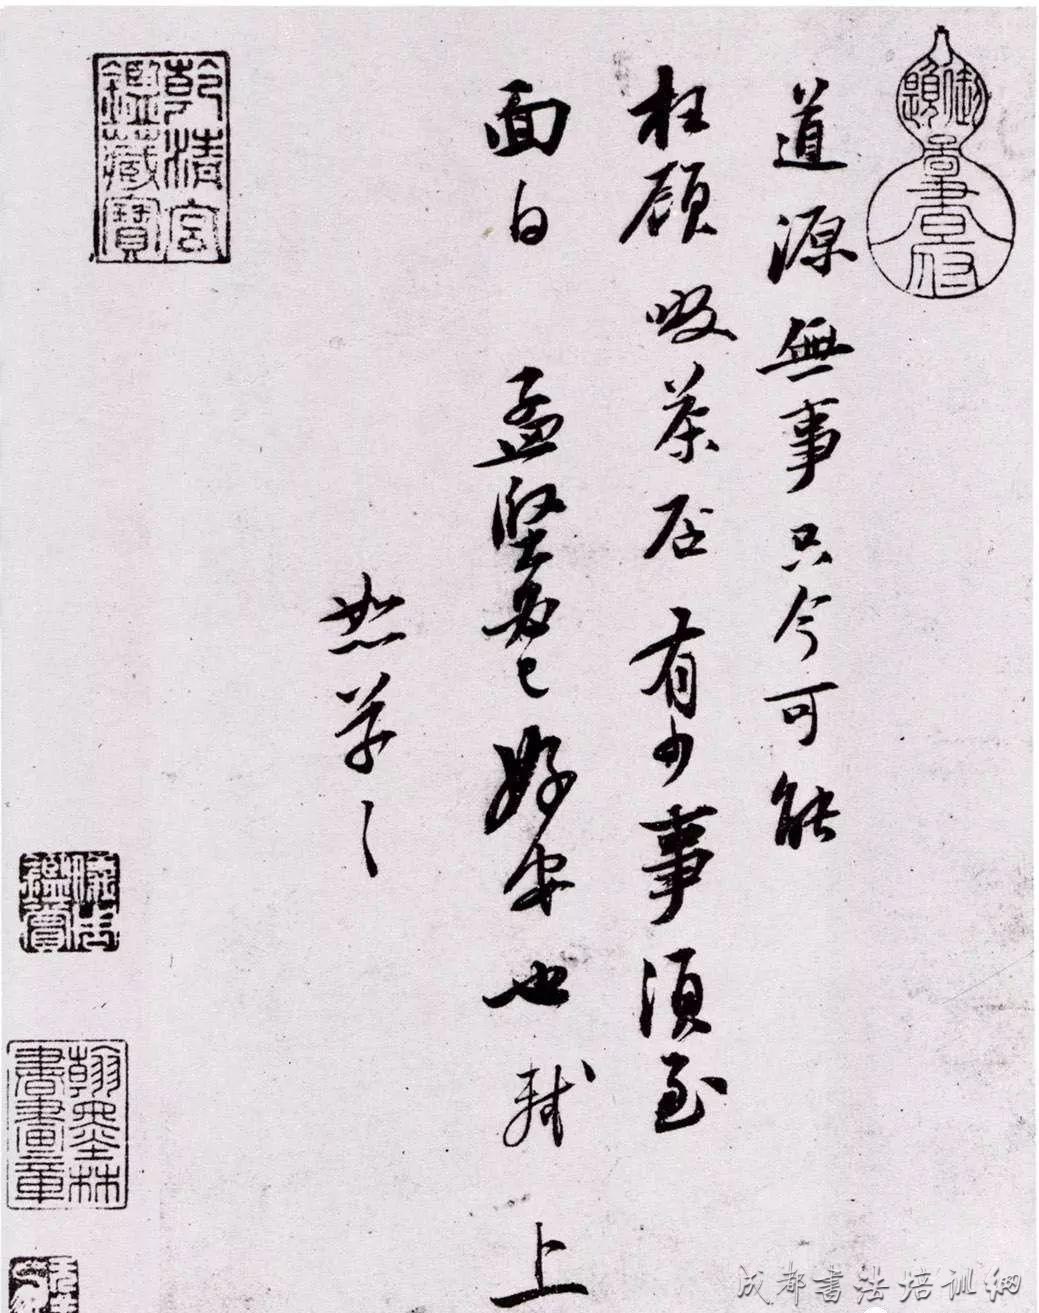 道源無事只今可能
枉顧啜茶否有少事須至
面白孟堅必已好安也軾上
恕草〻
御題
圖書府
乾清宮
鑑藏寶
翰墨林
書畫章
鑑賞
成都书法培训网